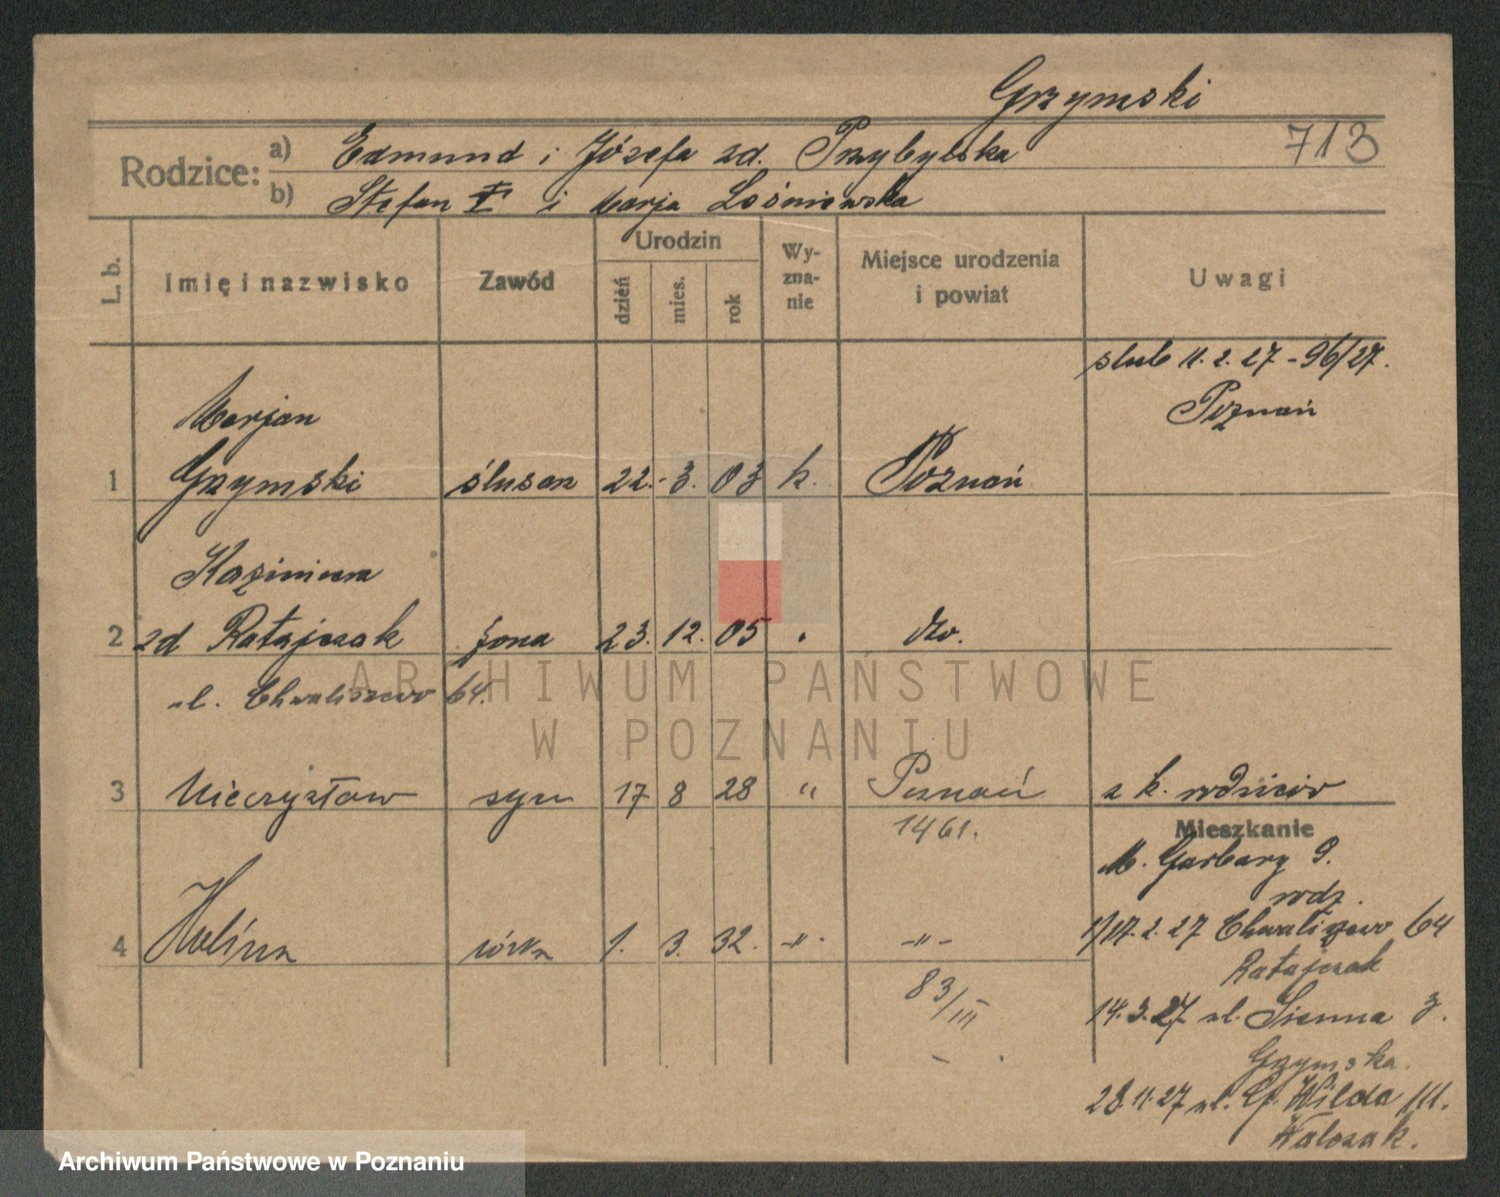 Grzymski
713
Rodzice:
a) Edmund i Józefa zd. Przybylska
b) Stefan i Marja Lośniewska
L. b.
Imię i nazwisko
Zawód
Urodzin
dzień
mies.
rok
Wy-
zna-
nie
Miejsce urodzenia
i powiat
Uwagi
ślub 11. 2. 27 - 96/27.
Poznań
Marjan
1 Grzymski ślusarz 22. 3. 03 k. Poznań
Kazimiera
2 zd Ratajczak żona 23. 12. 05 dto.
ul. Chwaliszewo 64.
3 Mieczysław syn 17 8 28 " Poznań z k. rodziców
1461.
Mieszkanie
M. Garbary 9.
rodz.
4 Halina córka 1. 3. 32. -"- -"-
17. 2. 27 Chwaliszewo 64
Ratajczak
83/III
14. 3. 27 ul. Sienna 3.
Grzymska.
28. 11. 27 ul. Wilda 111.
Walczak.
ARCHIWUM PAŃSTWOWE
W POZNANIU
Archiwum Państwowe w Poznaniu